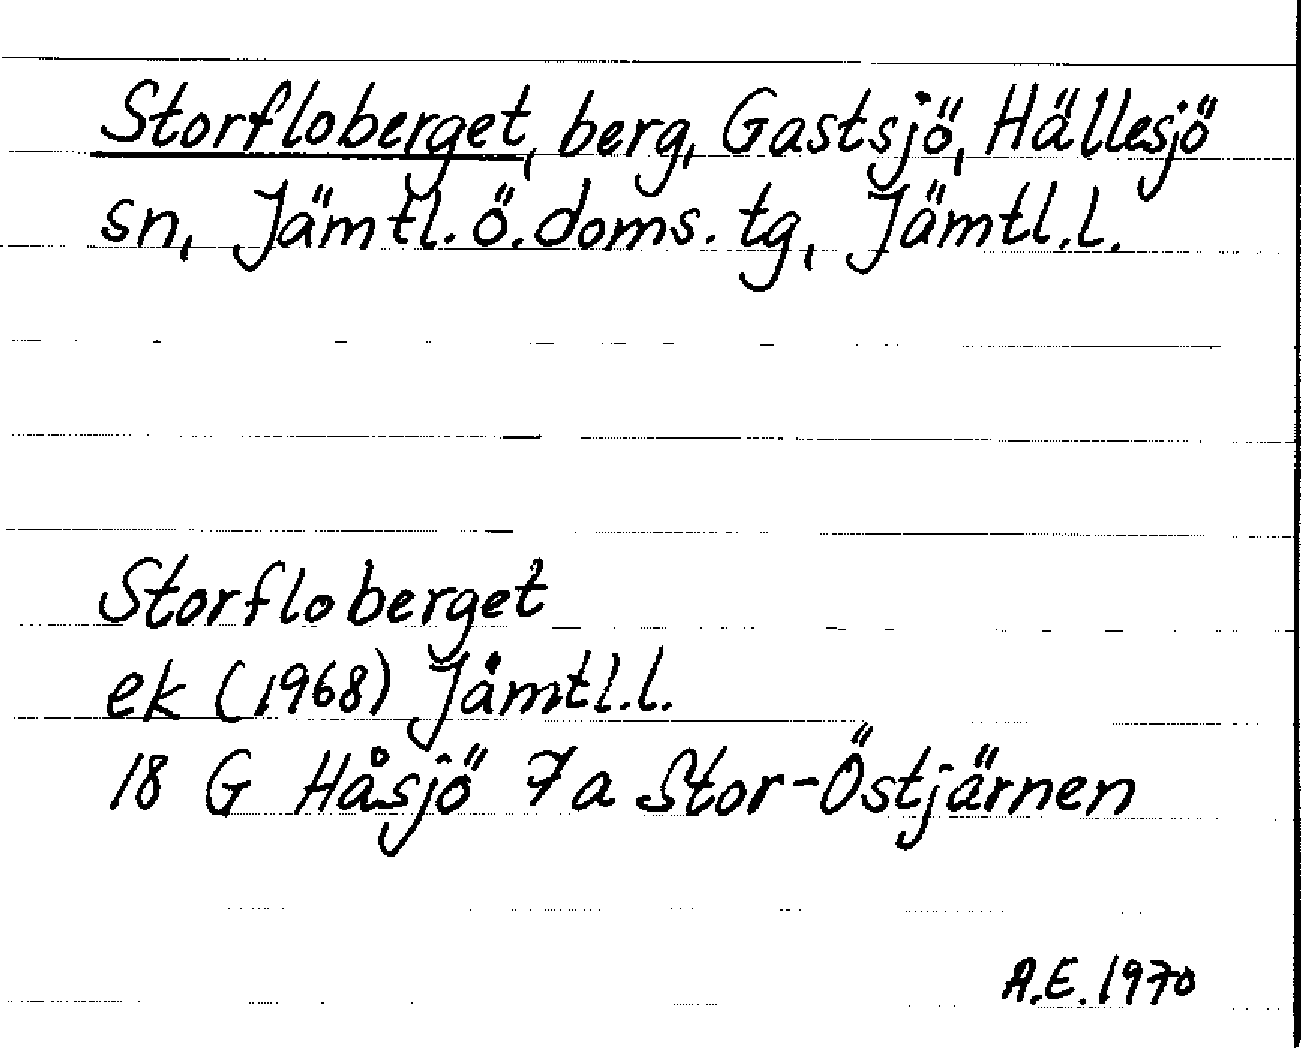 Storfloberget, berg, Gastsjö, Hällesjö
sn, Jämtl. ö. doms. tg, Jämtl.l.
Storfloberget
ek (1968) Jämtl.l.
18 G Håsjö 7a Stor-Östjärnen
A.E. 1970